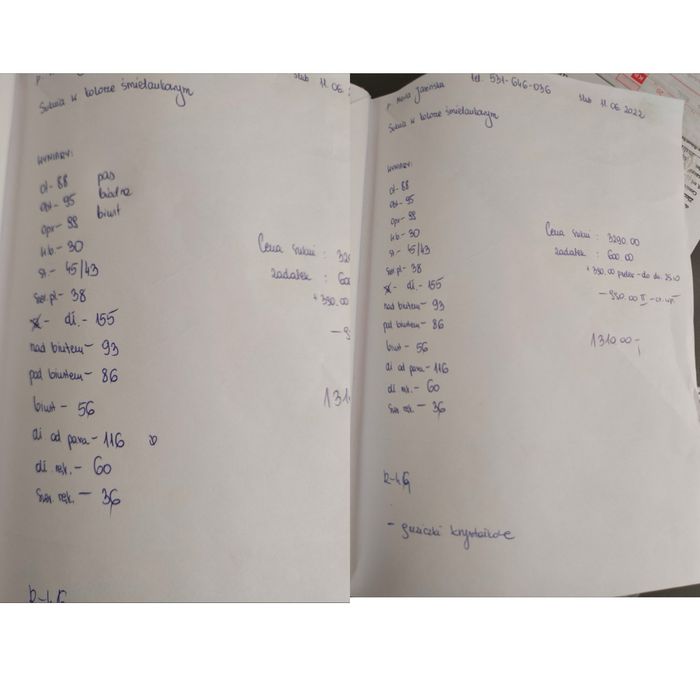 ślub 11.06.
Suknia w kolorze śmietankowym
WYMIARY:
ot- 88 pas
obt- 95 biodra
opr- 99 biust
kb- 30
st- 45/43
Szer.pl- 38
dł.- 155
nad biustem- 93
pod biustem- 86
biust- 56
dł od pasa- 116
dł. ręk.- 60
Szer. ręk.- 36
Cena sukni: 32
zadatek: 600
+ 390.00
131
tel. 531-646-036
p. Maria
ślub 11.06.2022
Suknia w kolorze śmietankowym
WYMIARY:
ot- 88
obt- 95
opr- 99
kb- 30
st- 45/43
Szer.pl- 38
dł.- 155
nad biustem- 93
pod biustem- 86
biust- 56
dł od pasa- 116
dł. ręk.- 60
Szer. ręk.- 36
Cena sukni: 3290.00
zadatek: 600.00
+ 390.00
- 990.00 II
1310.00-
- guziczki kryształkowe